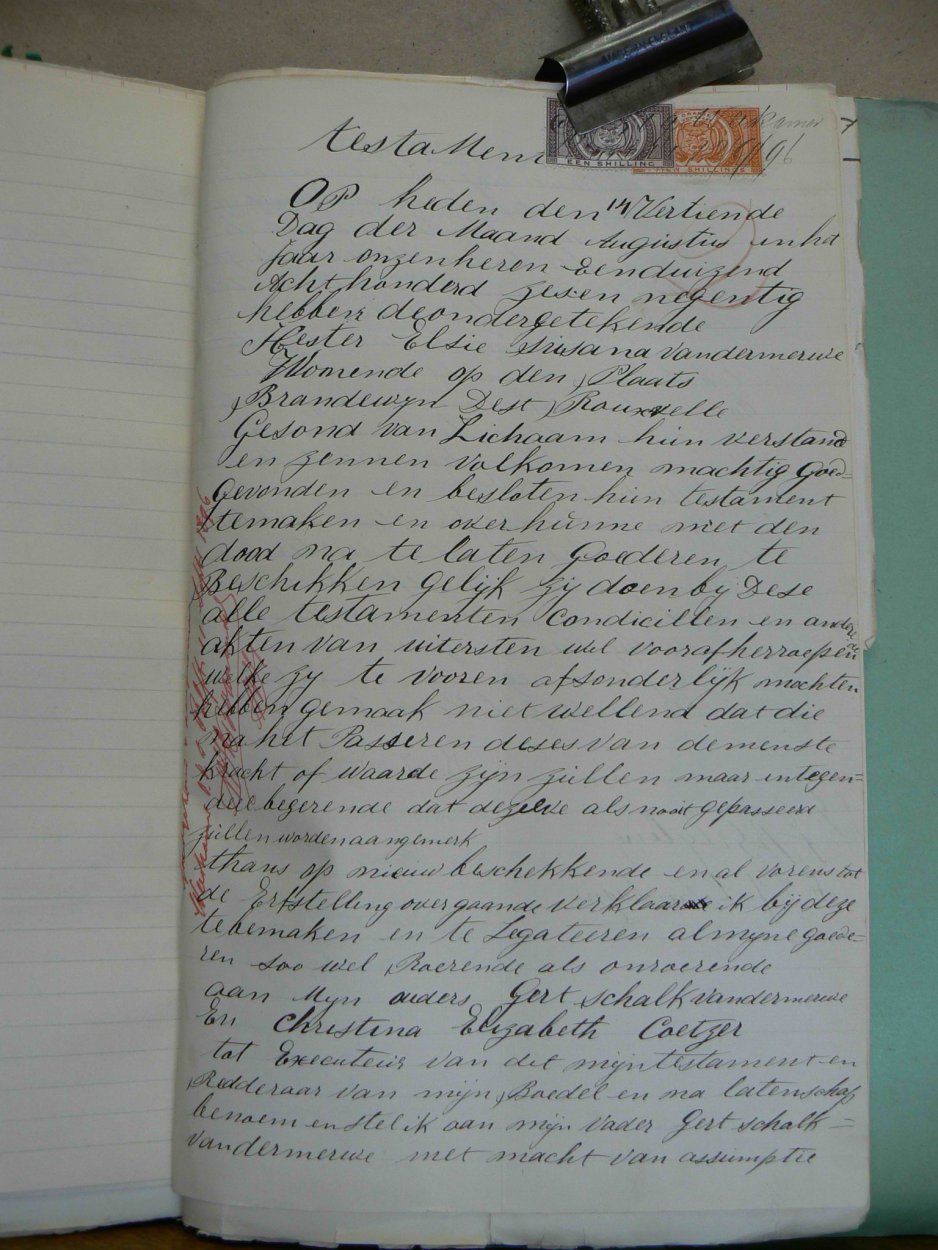 MADE IN ENGLAND
EEN SHILLING
TIEN SHILLINGS
testament
Op heden den 14 Vertiende
Dag der Maand Augustus in het
Jaar onzen heren Eenduizend
Achthonderd zes en negentig
hebben de ondergetekende
Hester Elsie Susana vandermerwe
Wonende op den Plaats
Brandewyn Dest Rouxvelle
Gesond van Lichaam hun verstand
en zennen volkomen machtig goed=
gevonden en besloten hun testament
temaken en over hunne met den
dood na te laten Goederen te
Beschikken gelijk zij doen by Dese
alle testamenten Condicillen en andere
akten van uitersten wel voorafherroepen
welke zy te vooren afsonderlijk mochten
hebben gemaak niet wellend dat die
na het Passeren deses van demenste
kracht of waarde zijn zullen maar integen=
deel begerende dat dezelve als nooit gepasseerd
zullen worden aangemerk
thans op nieuw beschekkende en al vorens tot
de Erfstelling overgaande verklaar ik bij deze
te bemaken en te Legateeren al myne goede=
ren soo wel Roerende als onroerende
aan Myn ouders Gert schalk vandermerwe
En Christina Elizabeth Coetzer
tot Executeur van dit mijn testament en
Redderaar van mijn Boedel en na latenschap
benoem en stel ik aan mijn vader Gert schalk=
vandermerwe met macht van assumptie